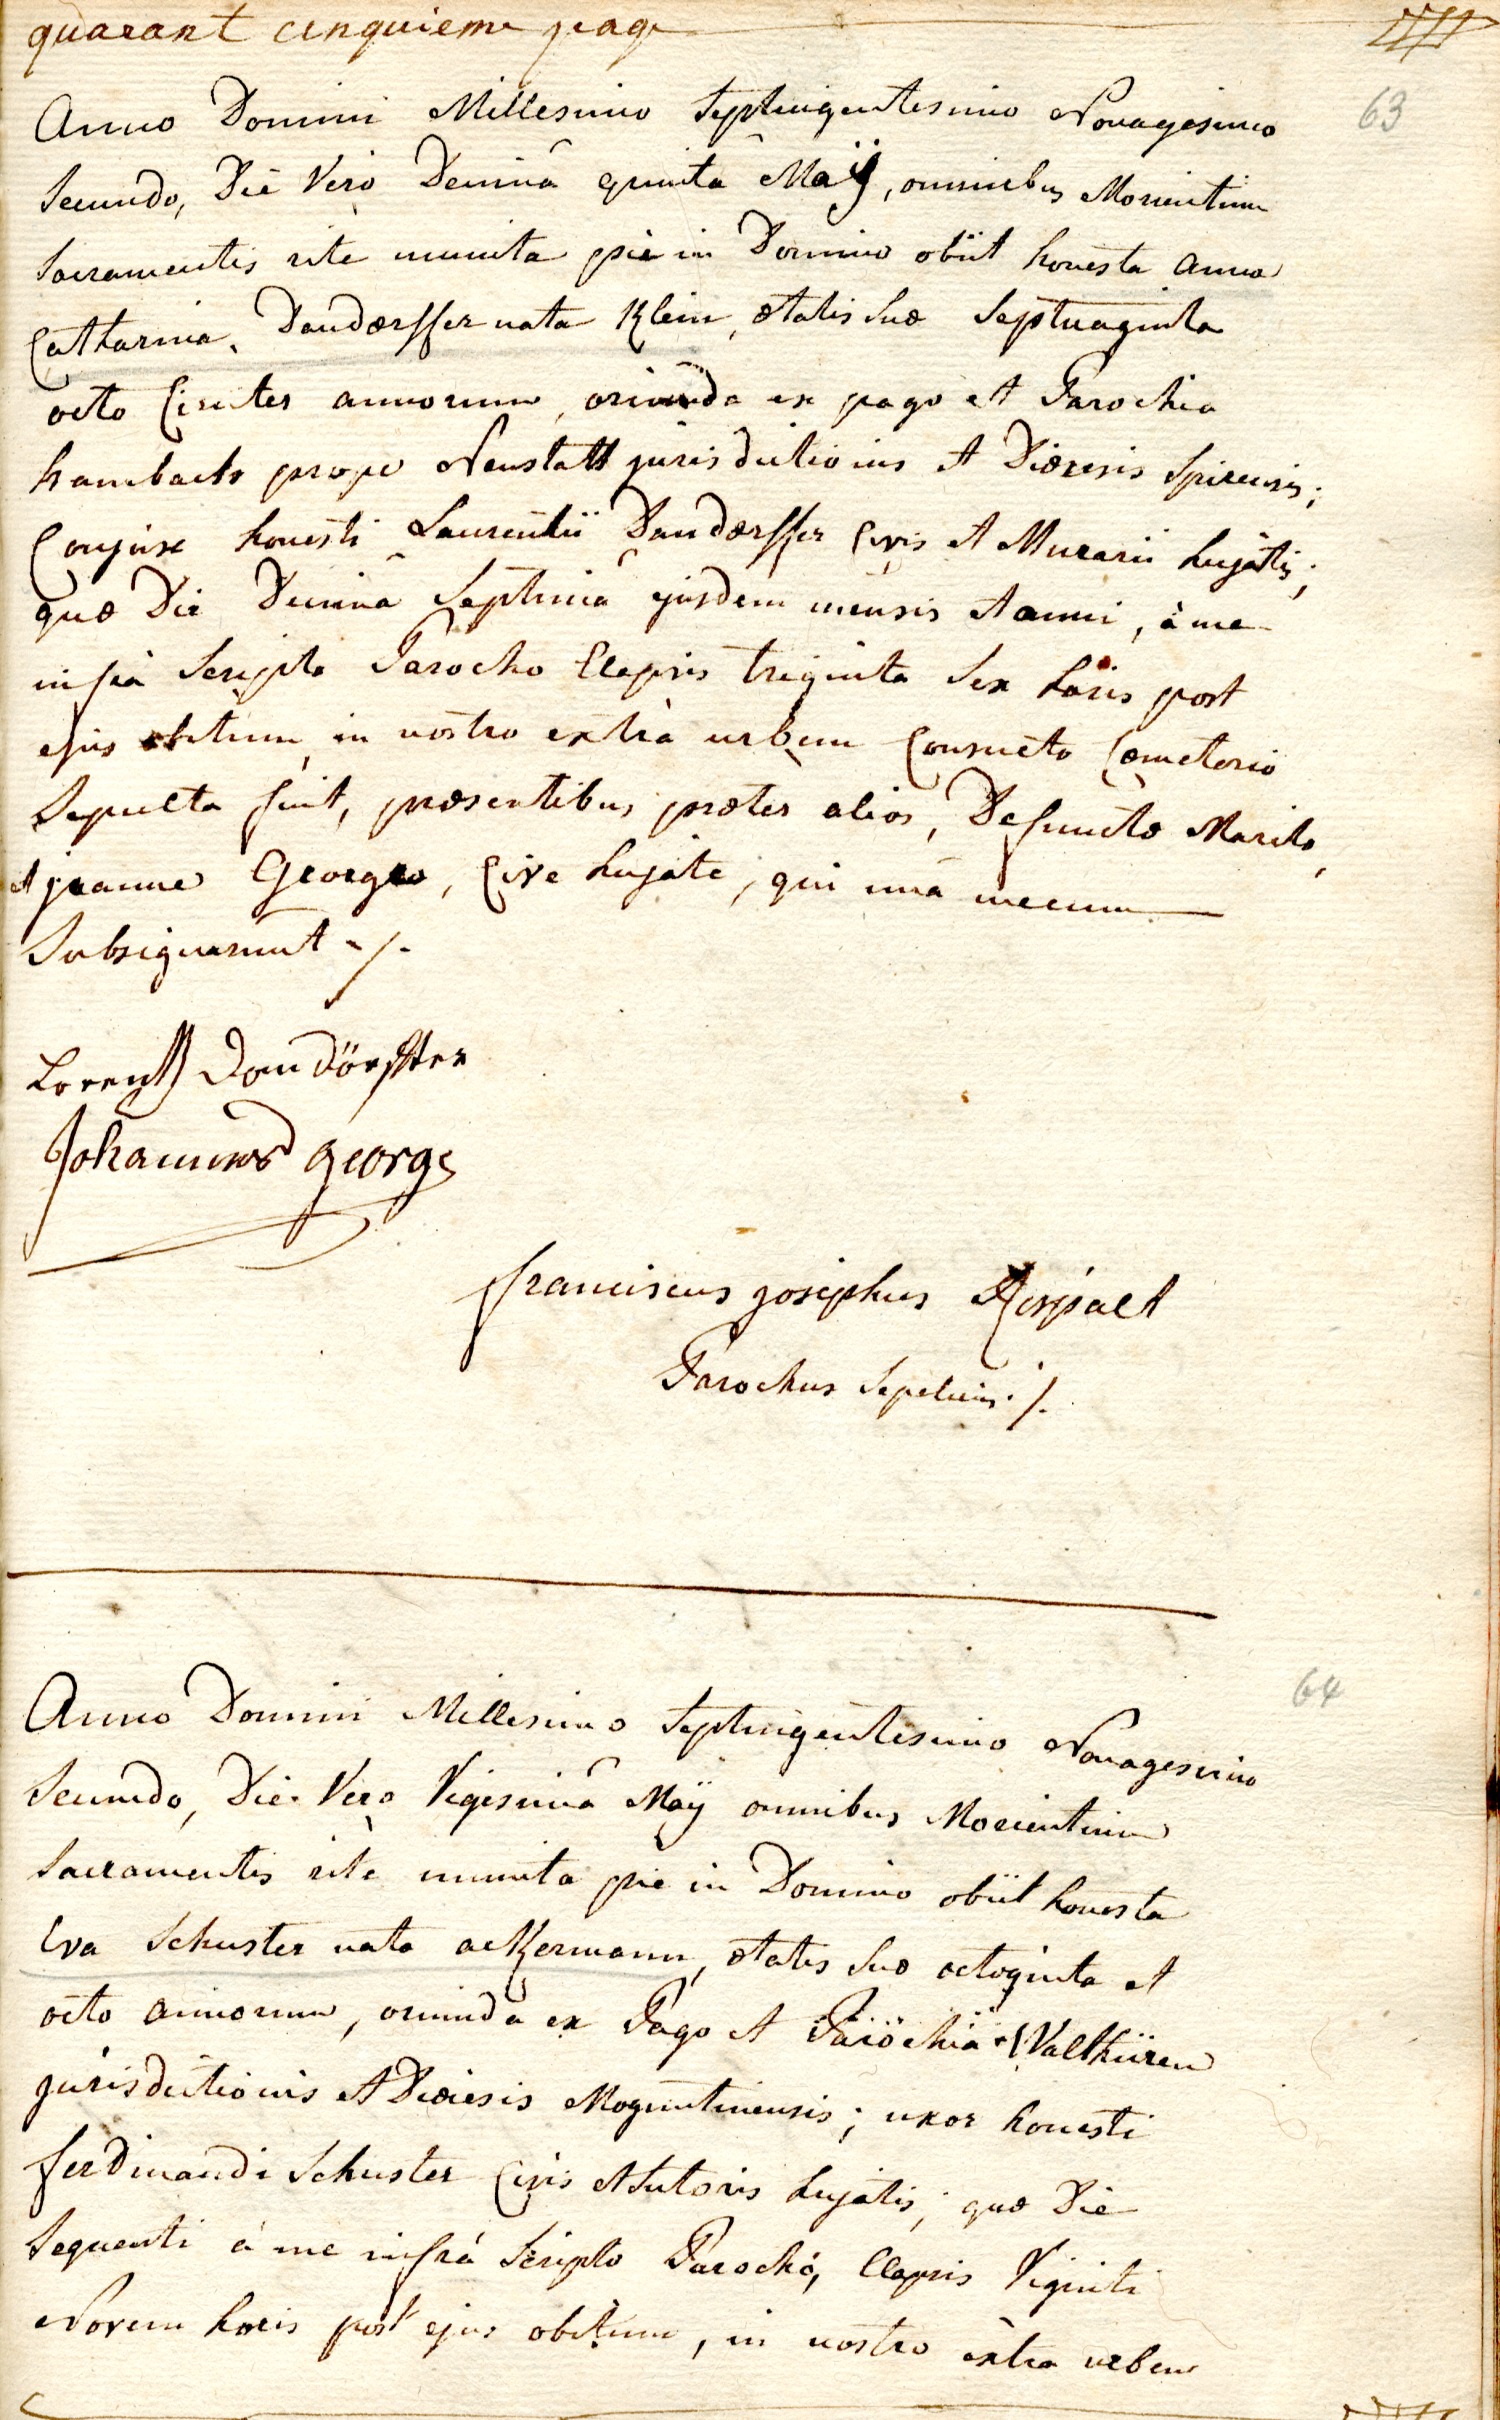 quarant cinquieme page
63
Anno Domini Millesimo Septuigentesimo Nonagesimo
Secundo, Die Vero Decimâ quinta Maÿ, omnibus Morientium
Sacramentis rite munita piè in Domino obiit honesta Anna
Catharina Dandœrffer nata Klein, ætatis Suæ Septuaginta
octo Circiter annorum, oriunda ex pago et Parochia
hambach prope Neustatt jurisdictionis et Diœresis Spirensis;
Conjux honesti Laurentii Dandœrffer Civis et Murarii hujatis;
quæ Die Decimâ Septimâ ejusdem mensis et anni, à me
infrà Scripto Parocho Elapsis triginta Sex horis post
ejus obitum, in nostro extrà urbem Consueto Cœmeterio
Sepulta fuit, præsentibus præter alios, Defunctæ Marito,
et joanne Georgio, Cive hujate, qui unà mecum
Subsignarunt ./.
Lorentz Dandörffer
Johannes george
franciscus josephus
Parochus Sepeliens ./.
64
Anno Domini Millesimo Septuigentesimo Nonagesimo
Secundo, Die Vero Vigesimâ Maÿ omnibus Morientium
Sacramentis rite munita pie in Domino obiit honesta
Eva Schuster nata ackermann, ætatis Suæ octoginta et
octo annorum, oriunda ex Pago et Parochiâ Walthüren
jurisdictionis et Diœcesis Moguntinensis; uxor honesti
ferdinandi Schuster Civis et Sutoris hujatis; quæ Die
Sequenti à me infrà Scripto Parochó, Elapsis Viginti
Novem horis post ejus obitum, in nostro extra urbem